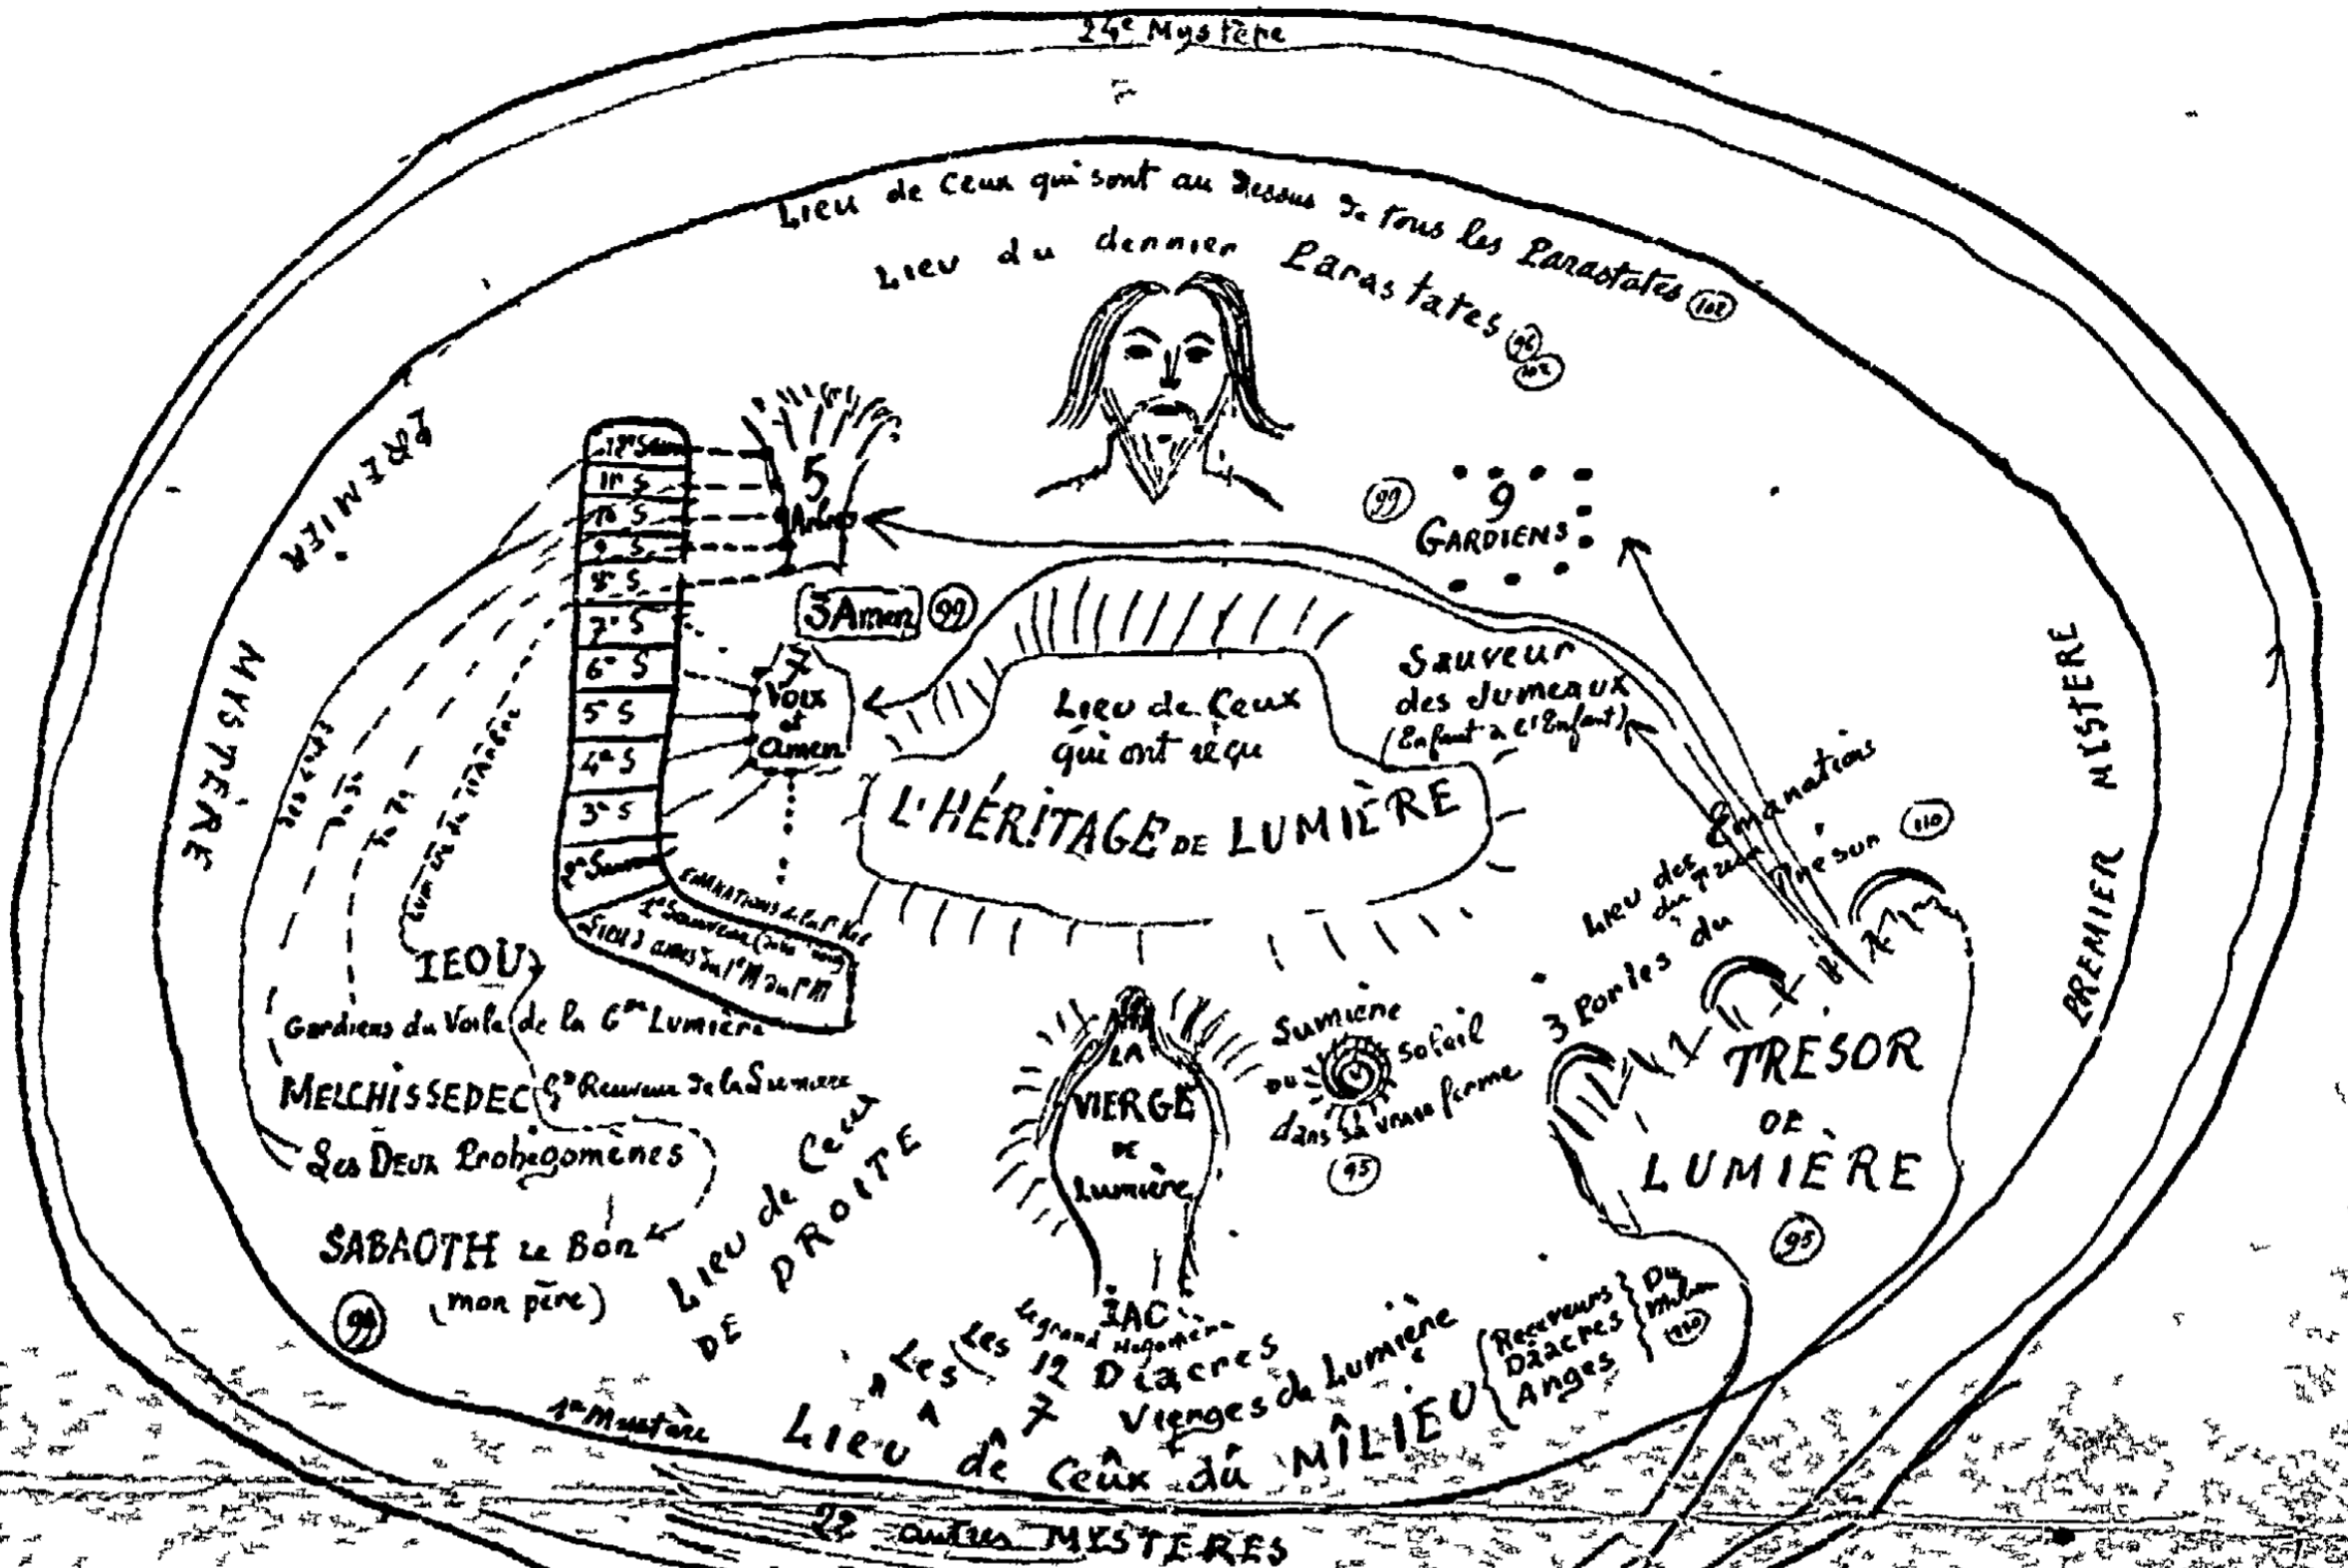 24e Mystère
Lieu de Ceux qui sont au dessus de tous les Parastates 102
Lieu du dernier Parastates 96
102
PREMIER MYSTÈRE
12e Sauv
11e S
10e S
9e S
8e S
7e S
6e S
5e S
4e S
3e S
2e Sauv
5
Arbres
3 Amen 99
7
Voix
et
Amen
99
9
GARDIENS
Sauveur
des Jumeaux
(Enfant de l'Enfant)
Lieu de Ceux
qui ont reçu
L'HÉRITAGE DE LUMIÈRE
PREMIER MISTERE
Lieu des Emanations
du Trésor 110
3 Portes du
TRESOR
DE
LUMIÈRE
95
1e Sauveur
IEOU
Gardiens du Voile de la Gde Lumière
MELCHISSEDEC Gd Receveur de la Lumière
Les Deux Prohégomènes
SABAOTH le Bon
(mon père)
Lieu de Ceux
DE DROITE
LA
VIERGE
DE
Lumière
Lumière
DU Soleil
dans sa vraie forme
95
IAC
Le grand Hégomène
Les 12 Diacres
Les 7 Vierges de Lumière
Lieu de Ceux du MILIEU
Receveurs
Diacres
Anges
Du
Milieu
110
1er Mystère
22 autres MYSTERES